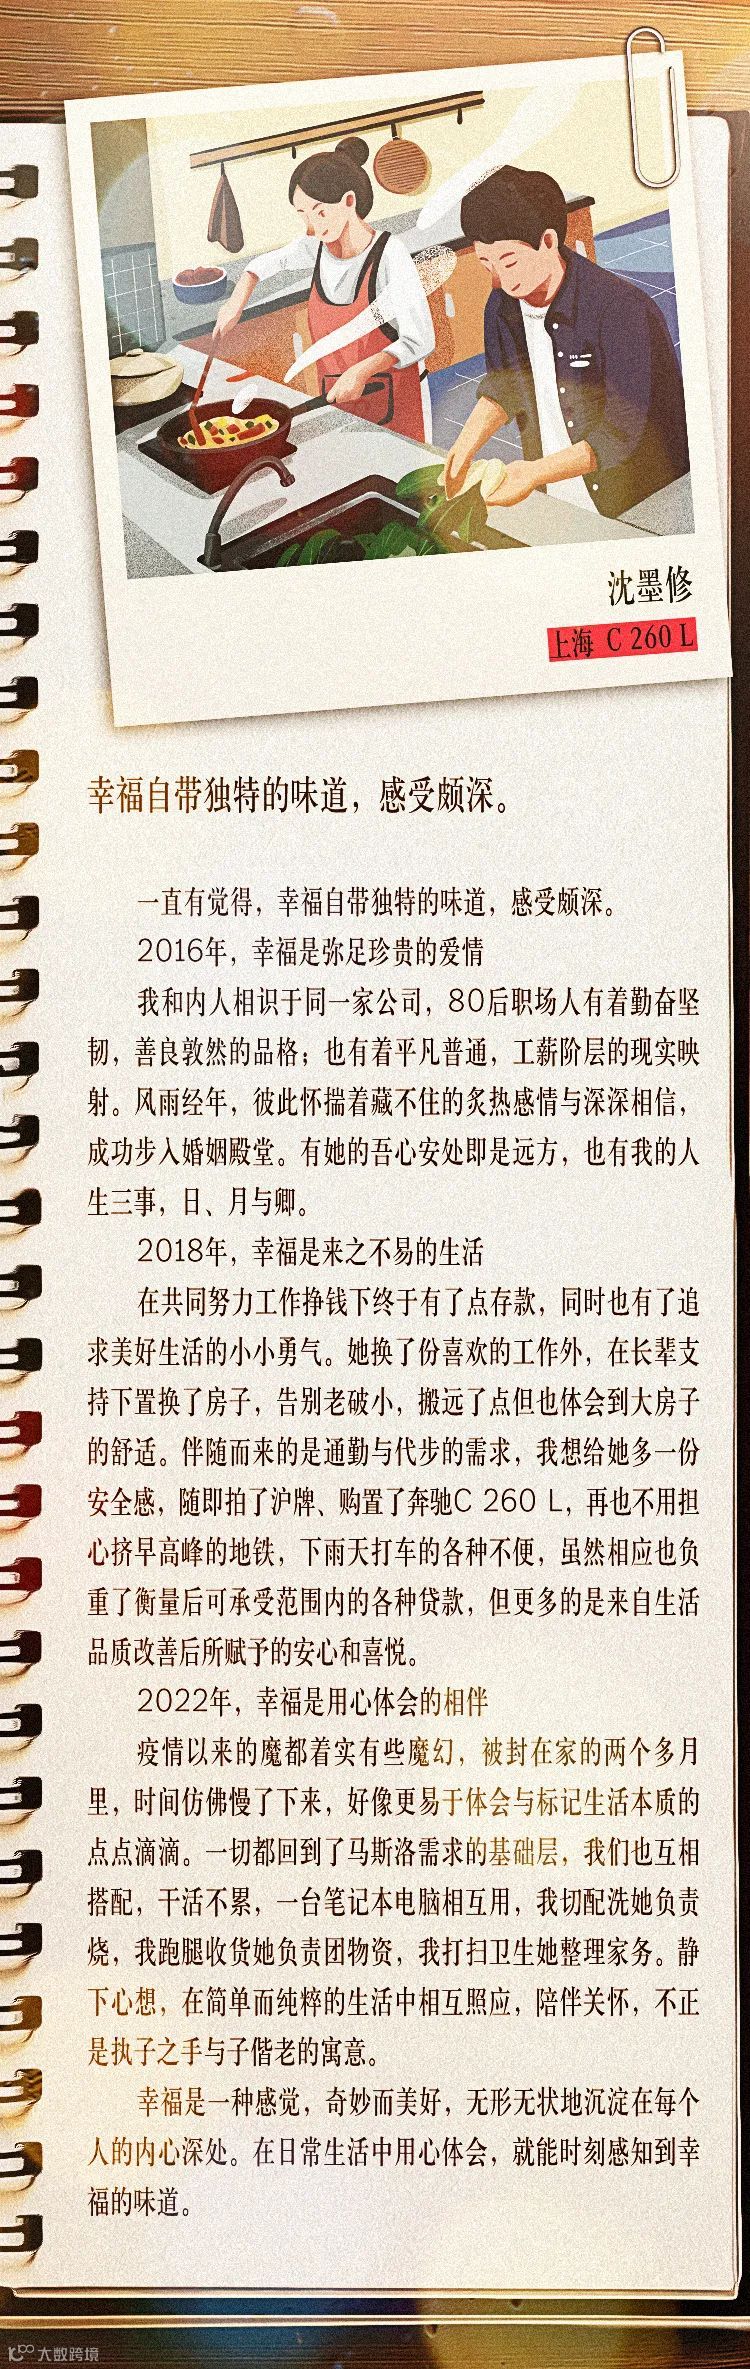 沈墨修
上海 C 260 L
幸福自带独特的味道，感受颇深。
一直有觉得，幸福自带独特的味道，感受颇深。
2016年，幸福是弥足珍贵的爱情
我和内人相识于同一家公司，80后职场人有着勤奋坚
韧，善良敦然的品格；也有着平凡普通，工薪阶层的现实映
射。风雨经年，彼此怀揣着藏不住的炙热感情与深深相信，
成功步入婚姻殿堂。有她的吾心安处即是远方，也有我的人
生三事，日、月与卿。
2018年，幸福是来之不易的生活
在共同努力工作挣钱下终于有了点存款，同时也有了追
求美好生活的小小勇气。她换了份喜欢的工作外，在长辈支
持下置换了房子，告别老破小，搬远了点但也体会到大房子
的舒适。伴随而来的是通勤与代步的需求，我想给她多一份
安全感，随即拍了沪牌、购置了奔驰C 260 L，再也不用担
心挤早高峰的地铁，下雨天打车的各种不便，虽然相应也负
重了衡量后可承受范围内的各种贷款，但更多的是来自生活
品质改善后所赋予的安心和喜悦。
2022年，幸福是用心体会的相伴
疫情以来的魔都着实有些魔幻，被封在家的两个多月
里，时间仿佛慢了下来，好像更易于体会与标记生活本质的
点点滴滴。一切都回到了马斯洛需求的基础层，我们也互相
搭配，干活不累，一台笔记本电脑相互用，我切配洗她负责
烧，我跑腿收货她负责团物资，我打扫卫生她整理家务。静
下心想，在简单而纯粹的生活中相互照应，陪伴关怀，不正
是执子之手与子偕老的寓意。
幸福是一种感觉，奇妙而美好，无形无状地沉淀在每个
人的内心深处。在日常生活中用心体会，就能时刻感知到幸
福的味道。
大数跨境